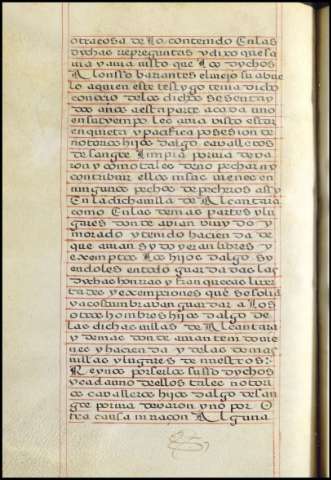 otra cosa de lo contenido en las
dichas repreguntas y dixo que sa
uia y auia uisto que los dychos
Alonsso barantes el uiejo su abue
lo a quien este testigo tenia dicho
conoçio de los dichos sesenta y
dos años a esta parte a cada uno
en su tiempo les auia uisto estar
en quieta y paçifica posesion de
notorios hijos dalgo caualleros
de sangre limpia por uia de ua
ron y como tales de no pechar ny
contribuir ellos ni sus menores en
ningunos pechos de pecheros assy
en la dicha uilla de Alcantara
como en las demas partes y lu
gares donde auian uiuydo y
morado y tenido hacienda de
que auian sydo y eran libres y
exemptos los hijos dalgo sy
endoles en todo guardadas las
dychas honrras y franquezas liuer
tades y exempciones que se solia
y acostumbraban guardar a los
otros hombres hijos dalgo de
las dichas uillas de Alcantara
y demas donde auian tenido bie
nes y hacienda y de las demas
uillas y lugares de nuestros
Reynos por ser los susso dychos
y cada uno dellos tales notori
os caualleros hijos dalgo de san
gre por uia de uaron y no por o
tra causa ni raçon Alguna